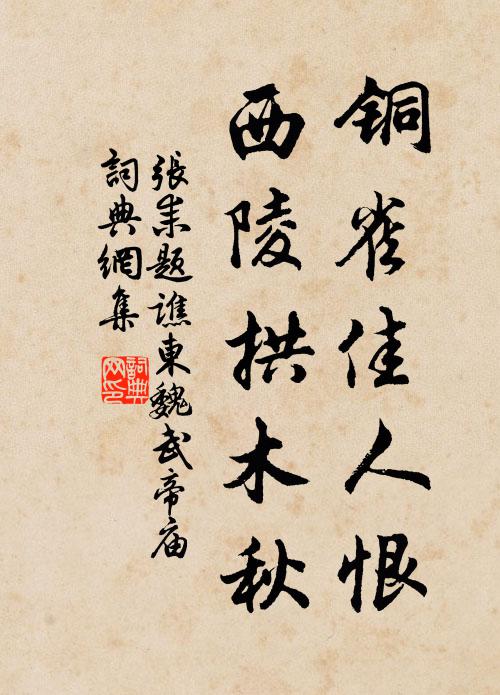 銅雀佳人恨
西陵拱木秋
張耒題譙東魏武帝庙
詞典網集
詞典
网印